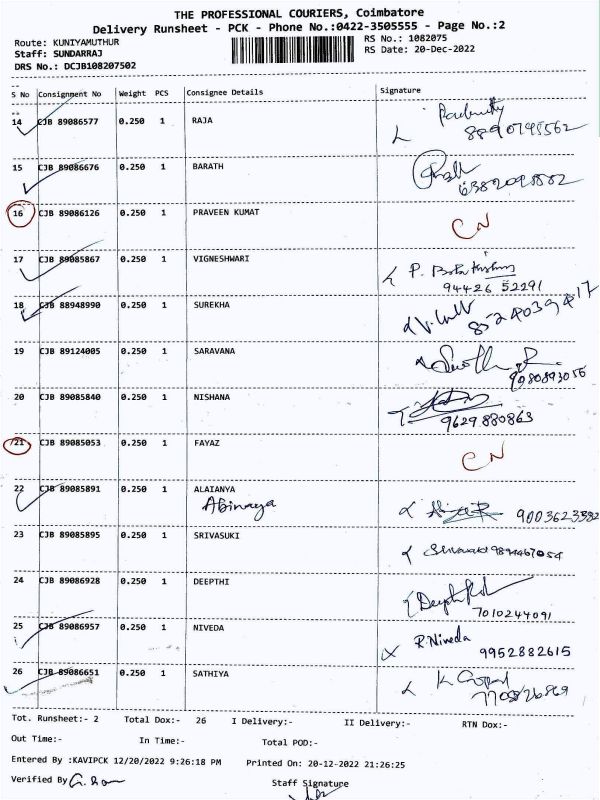 THE PROFESSIONAL COURIERS, Coimbatore
Delivery Runsheet - PCK - Phone No.:0422-3505555 - Page No.:2
Route: KUNIYAMUTHUR
RS No.: 1082075
Staff: SUNDARRAJ
RS Date: 20-Dec-2022
DRS No.: DCJB108207502
S No Consignment No Weight PCS Consignee Details Signature
14 CJB 89086577 0.250 1 RAJA
15 CJB 89086676 0.250 1 BARATH
16 CJB 89086126 0.250 1 PRAVEEN KUMAT CN
17 CJB 89085867 0.250 1 VIGNESHWARI
94426 52291
18 CJB 88948990 0.250 1 SUREKHA
19 CJB 89124005 0.250 1 SARAVANA
20 CJB 89085840 0.250 1 NISHANA
9629 880863
21 CJB 89085053 0.250 1 FAYAZ CN
22 CJB 89085891 0.250 1 ALAIANYA
Abinaya 9003623382
23 CJB 89085895 0.250 1 SRIVASUKI
24 CJB 89086928 0.250 1 DEEPTHI
7010244091
25 CJB 89086957 0.250 1 NIVEDA R.Niveda
9952882615
26 CJB 89086651 0.250 1 SATHIYA K Gopal
Tot. Runsheet:- 2 Total Dox:- 26 I Delivery:- II Delivery:- RTN Dox:-
Out Time:- In Time:- Total POD:-
Entered By :KAVIPCK 12/20/2022 9:26:18 PM Printed On: 20-12-2022 21:26:25
Verified By
Staff Signature